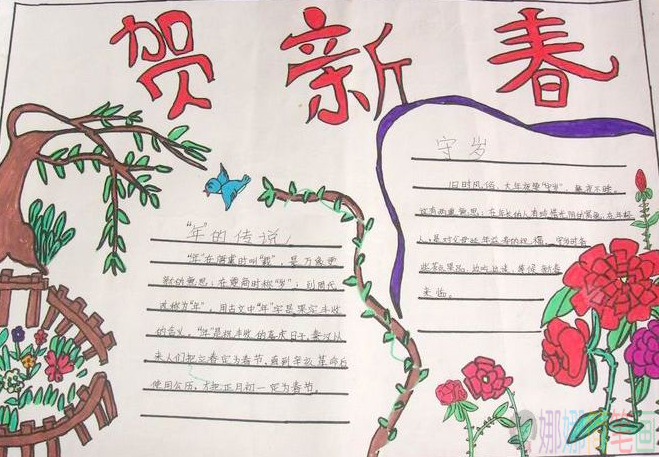 贺新春
"年"的传说
"年"在唐虞时叫"载",是万象更
新的意思;在夏商时称"岁";到周代
改称为"年"。用古文中"年"字是果实丰收
的含义。"年"是祝丰收的喜庆日子,秦汉以
来人们把立春定为春节。直到辛亥革命后
使用公历,才把正月初一定为春节。
守岁
旧时风俗,大年夜要"守岁",通宵不睡。
这有两重意思:在年长的人有珍惜光阴的意思,在年轻
人,是对父母延年益寿的祝福。守岁时备
些茶水果品,边吃边谈,等候新春
来临。
娜娜简笔画